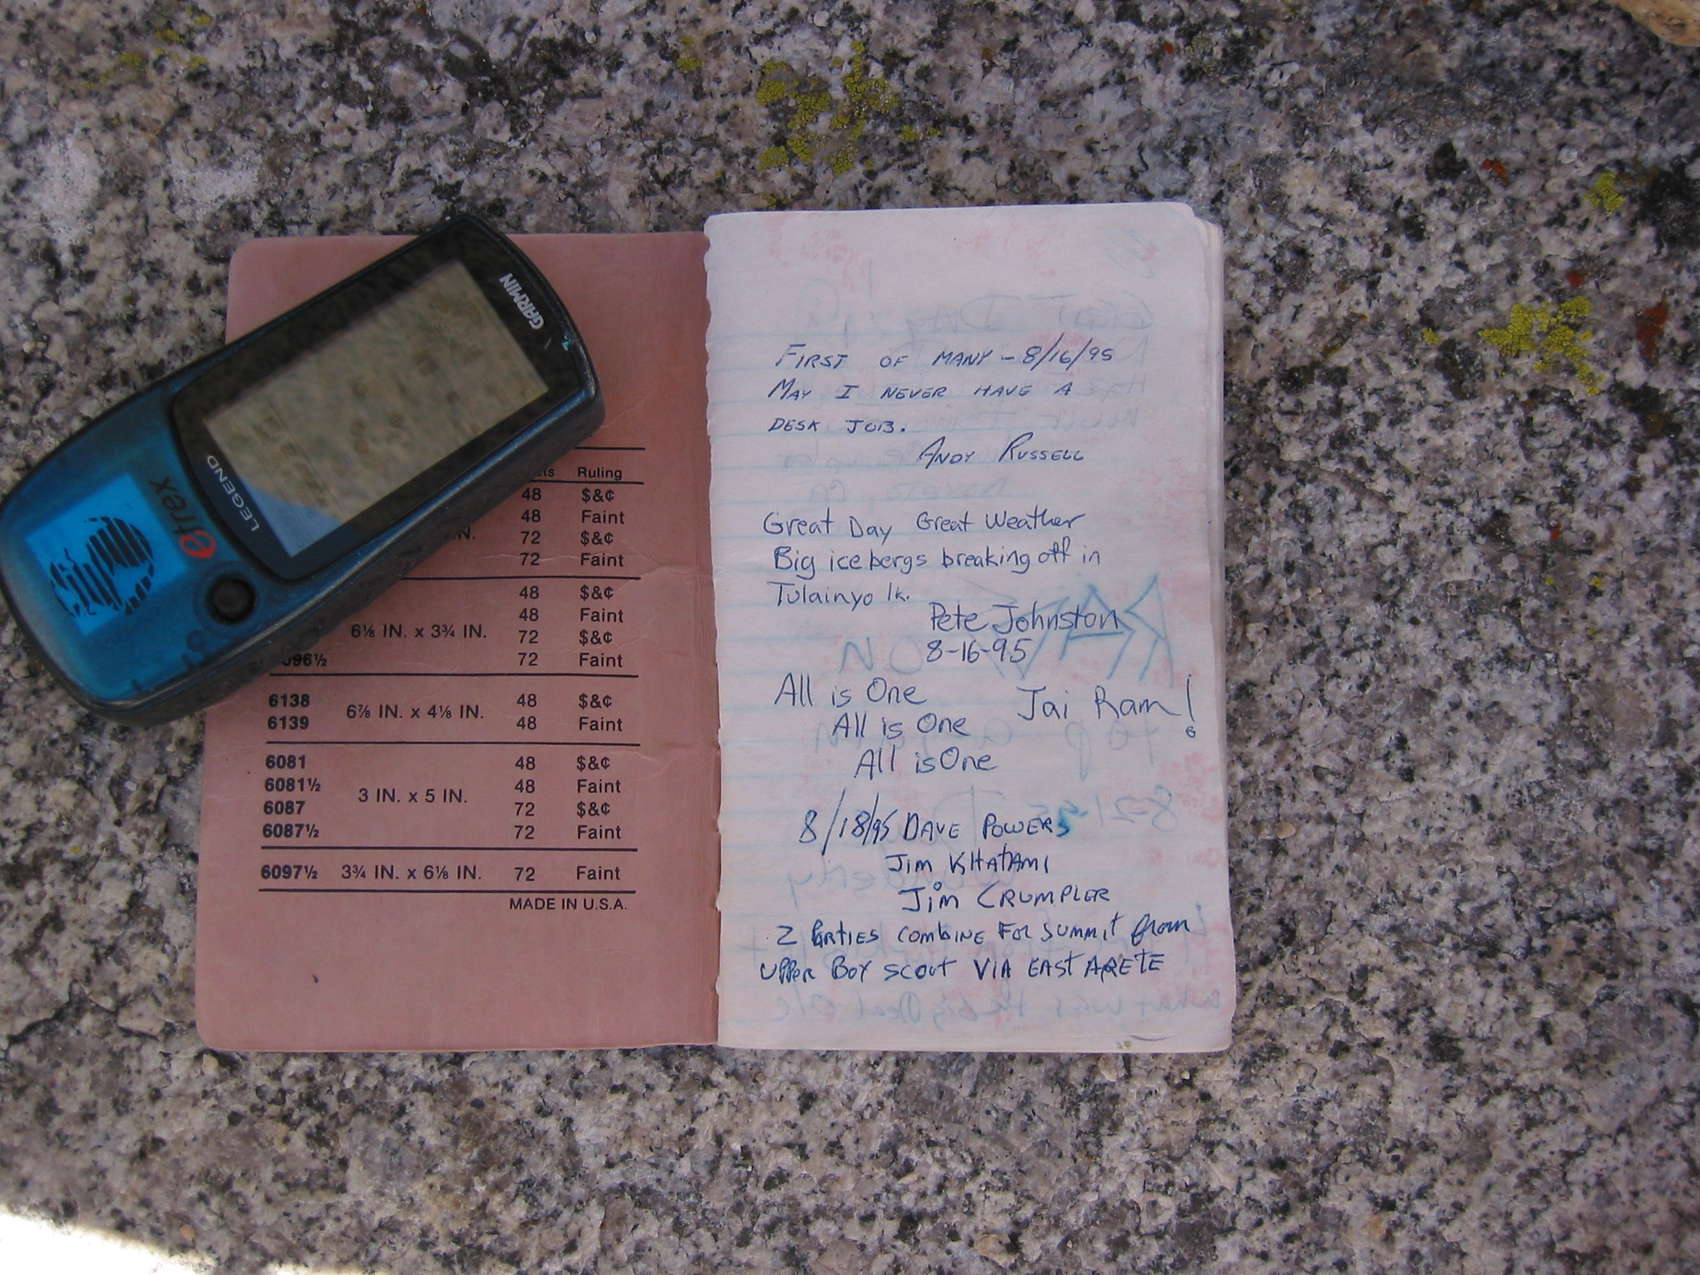 GARMIN
eTrex
LEGEND
Ruling
48 $&¢
48 Faint
IN. 72 $&¢
72 Faint
48 $&¢
48 Faint
6⅛ IN. x 3¾ IN. 72 $&¢
6096½ 72 Faint
6138 48 $&¢
6⅞ IN. x 4⅛ IN.
6139 48 Faint
6081 48 $&¢
6081½ 48 Faint
3 IN. x 5 IN.
6087 72 $&¢
6087½ 72 Faint
6097½ 3¾ IN. x 6⅛ IN. 72 Faint
MADE IN U.S.A.
FIRST OF MANY - 8/16/95
MAY I NEVER HAVE A
DESK JOB.
ANDY RUSSELL
Great Day Great Weather
Big ice bergs breaking off in
Tulainyo lk.
Pete Johnston
8-16-95
All is One Jai Ram!
All is One
All is One
8/18/95 DAVE POWERS
Jim KHATAMI
Jim CRUMPLER
2 PARTIES COMBINE FOR SUMMIT from
UPPER BOY SCOUT VIA EAST ARETE